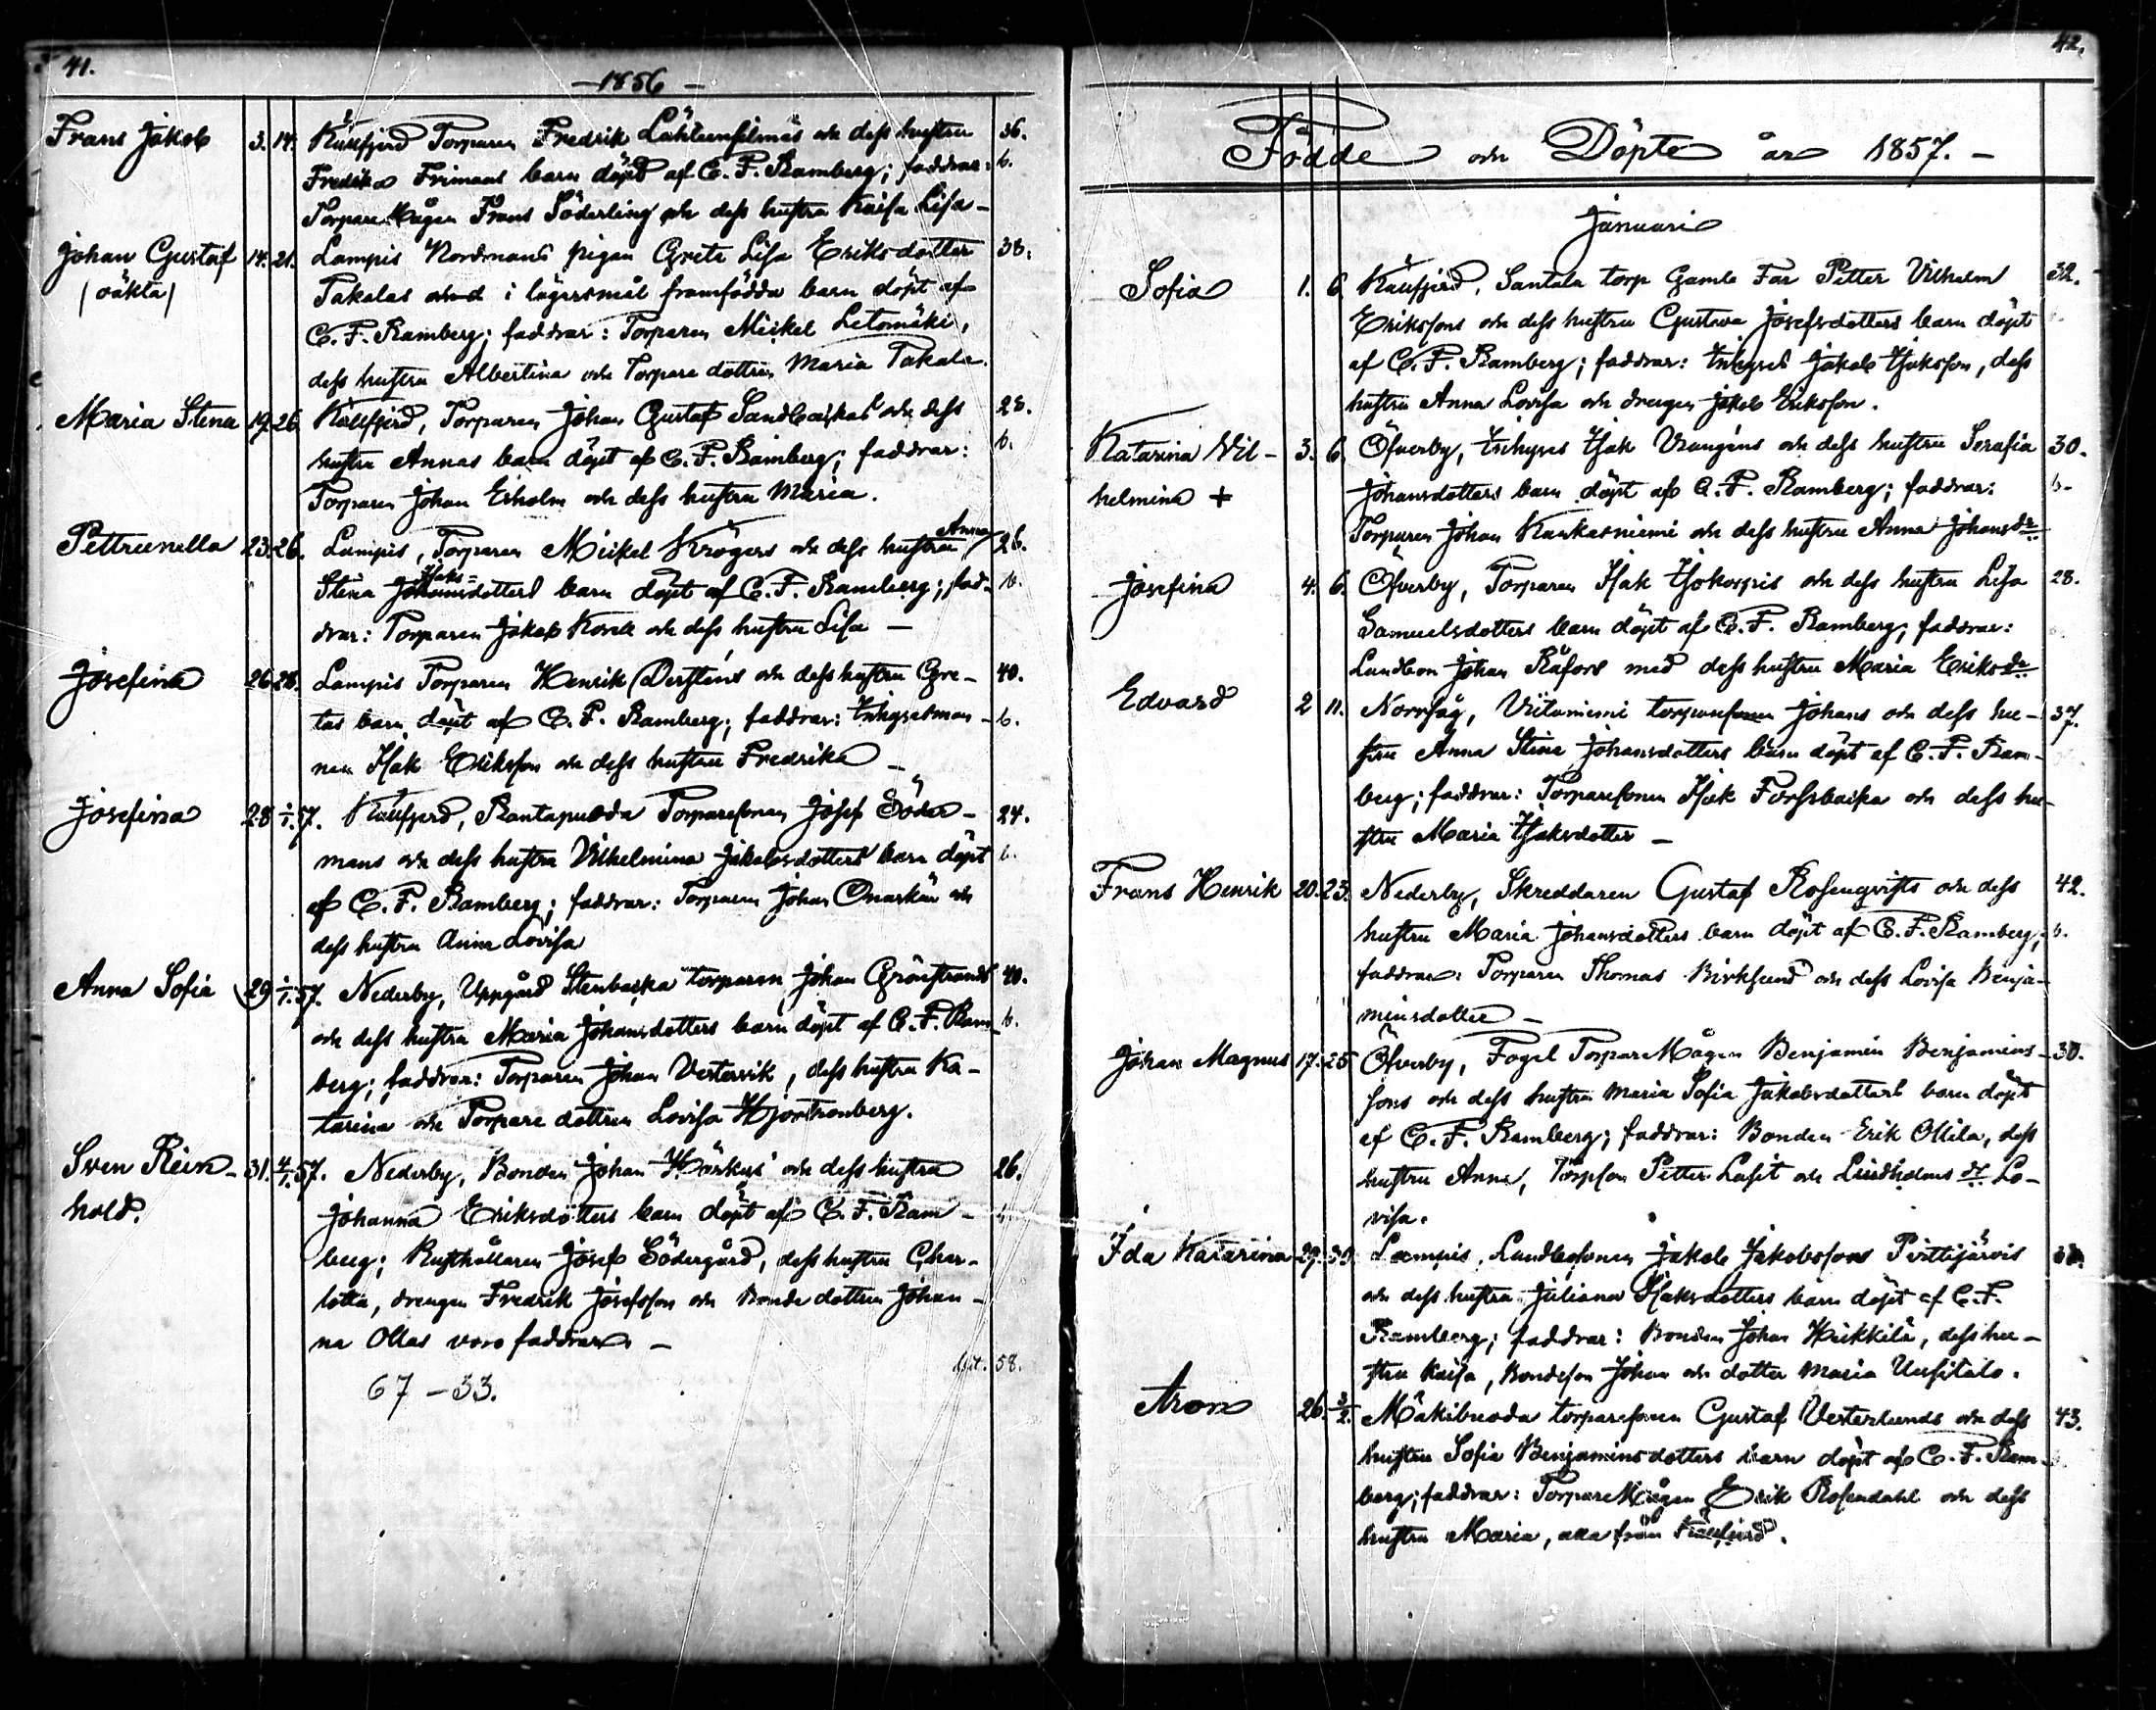 41.
—1856—
Frans Jakob 3. 14. Råufjerd Torparen Fredrik Lähteensilmäs och dess hustru 36.
Fredika Frimans barn döpt af C. F. Ramberg; faddrar: b.
Torpare Mågen Frans Söderling och dess hustru Kaisa Lisa —
Johan Gustaf 14. 21. Lampis Nordmans pigan Greta Lisa Eriksdotter 38.
(oäkta) Takalas i lägersmål framfödda barn döpt af
C. F. Ramberg; faddrar: Torparen Mickel Letomäki,
dess hustru Albertina och Torpare dottren Maria Takala.
Maria Stena 19. 26. Råufjerd, Torparen Johan Gustaf Sandbackas och dess 28.
hustru Annas barn döpt af C. F. Ramberg; faddrar: b.
Torparen Johan Ekholm och dess hustru Maria.
Pettrunella 23. 26. Lampis, Torparen Mickel Krögers och dess hustru Anna 26.
Stina Isaks= dotters barn döpt af C. F. Ramberg; fad- b.
drar: Torparen Jakob Korck och dess hustru Lisa —
Josefina 26. 28. Lampis Torparen Henrik Versténs och dess hustru Gre- 40.
tas barn döpt af C. F. Ramberg; faddrar: Inhysesman- b.
nen Isak Eriksson och dess hustru Fredrika —
Josefina 28 1/1. 57. Råufjerd, Rantapuoda Torparesonen Josef Söder- 24.
mans och dess hustru Vilhelmina Jakobsdotters barn döpt b.
af C. F. Ramberg; faddrar: Torparen Johan Onarkän och
dess hustru Anna Lovisa
Anna Sofia 29 1/1. 57. Nederby, Uppgård Stenbacka torparen Johan Grönstrands 40.
och dess hustru Maria Johansdotters barn döpt af C. F. Ram- b.
berg; faddrar: Torparen Johan Vestervik, dess hustru Ka-
tarina och Torpare dottren Lovisa Hjortronberg.
Sven Rein- 31. 4/1. 57. Nederby, Bonden Johan Hörkys' och dess hustru 26.
hold. Johanna Eriksdotters barn döpt af C. F. Ram-
berg; Rusthållaren Josef Södergård, dess hustru Char-
lotta, drengen Fredrik Josefsson och Bonde dottren Johan-
na Ollas voro faddrar —
58.
67 — 33.
42.
Födde och Döpte år 1857. —
Januari
Sofia 1. 6. Råufjerd, Santala torp Gamle Far Petter Vilhelm 32.
Erikssons och dess hustru Gustava Josefsdotters barn döpt
af C. F. Ramberg; faddrar: Inhyses Jakob Isaksson, dess
hustru Anna Lovisa och drengen Jakob Eriksson.
Katarina Vil- 3. 6. Öfverby, Inhyses Isak Vrangéns och dess hustru Serafia 30.
helmina + Johansdotters barn döpt af C. F. Ramberg; faddrar: b.
Torparen Johan Kankasniemi och dess hustru Anna Johansdr.
Josefina 4. 6. Öfverby, Torparen Isak Isokorpis och dess hustru Lisa 28.
Samuelsdotters barn döpt af C. F. Ramberg; faddrar:
Landbon Johan Råfors med dess hustru Maria Eriksdr.
Edvard 2 11. Norrsåg, Viitaniemi torparesonen Johans och dess hu- 37.
stru Anna Stina Johansdotters barn döpt af C. F. Ram-
berg; faddrar: Torparesonen Isak Forssbacka och dess hu-
stru Maria Isaksdotter —
Frans Henrik 20. 23. Nederby, Skreddaren Gustaf Rosenqvists och dess 42.
hustru Maria Johansdotters barn döpt af C. F. Ramberg; b.
faddrar: Torparen Thomas Birklund och dess Lovisa Benja-
minsdotter —
Johan Magnus 17. 25 Öfverby, Fogel Torpare Mågen Benjamin Benjamins- 30.
sons och dess hustru Maria Sofia Jakobsdotters barn döpt
af C. F. Ramberg; faddrar: Bonden Erik Ollila, dess
hustru Anna, Torpson Petter Lasit och Lindholms dr. Lo-
visa.
Ida Katarina 29. 30. Lampis, Landbosonen Jakob Jakobssons Pirttijärvis
och dess hustru Juliana Isaksdotters barn döpt af C. F.
Ramberg; faddrar: Bonden Johan Heikkilä, dess hu-
stru Kaisa, Bondeson Johan och dotter Maria Uusitalo.
Aron 26. 3/2. Mäkibuoda torparesonen Gustaf Vesterlunds och dess 43.
hustru Sofia Benjaminsdotters barn döpt af C. F. Ram-
berg; faddrar: Torpare Mågen Erik Rosendahl och dess
hustru Maria, alla från Råufjerd.